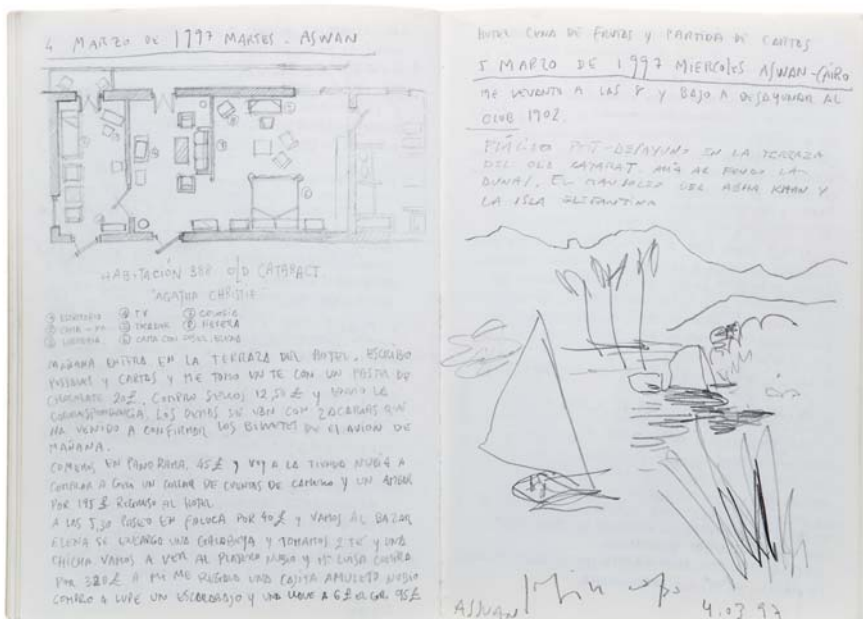 4 MARZO DE 1997 MARTES - ASWAN
HABITACIÓN 388 OLD CATARACT.
"AGATHA CHRISTIE"
TV
TOCADOR
NEVERA
CAMA CON DOSEL
MAÑANA ENTERA EN LA TERRAZA DEL HOTEL. ESCRIBO
POSTALES Y CARTAS Y ME TOMO UN TE CON UN PASTEL DE
CHOCOLATE 20£. COMPRO SELLOS 12,50£ Y ENVIO LA
CORRESPONDENCIA. LOS DEMAS SE VAN CON ZACARIAS QUE
HA VENIDO A CONFIRMAR LOS BILLETES DE EL AVION DE
MAÑANA.
COMEMOS EN PANORAMA. 45£ Y VOY A LA TIENDA NUBIA A
COMPRAR A UN COLLAR DE CUENTAS DE CAMELLO Y UN AMBAR
POR 195£ REGRESO AL HOTEL
A LAS 5,30 PASEO EN FALUCA POR 40£ Y VAMOS AL BAZAR
ELENA SE ENCARGO UNA GALABEYA Y TOMAMOS 2 TE Y UNA
CHICHA. VAMOS A VER AL PLATERO NUBIO Y Mª LUISA COMPRA
POR 320£ A MI ME REGALO UNA CAJITA AMULETO NUBIO
COMPRO A LUPE UN ESCARABAJO Y UNA LLAVE A 6£ EL GR. 95£
HOTEL CENA DE FRUTAS Y PARTIDA DE CARTAS
5 MARZO DE 1997 MIERCOLES ASWAN-CAIRO
ME LEVANTO A LAS 8 Y BAJO A DESAYUNAR AL
CLUB 1902.
PLÁCIDO POST-DESAYUNO EN LA TERRAZA
DEL OLD CATARAT. ALLÁ AL FONDO LAS
DUNAS, EL MAUSOLEO DEL AGHA KHAN Y
LA ISLA ELEFANTINA
ASSUAN
4.03 97